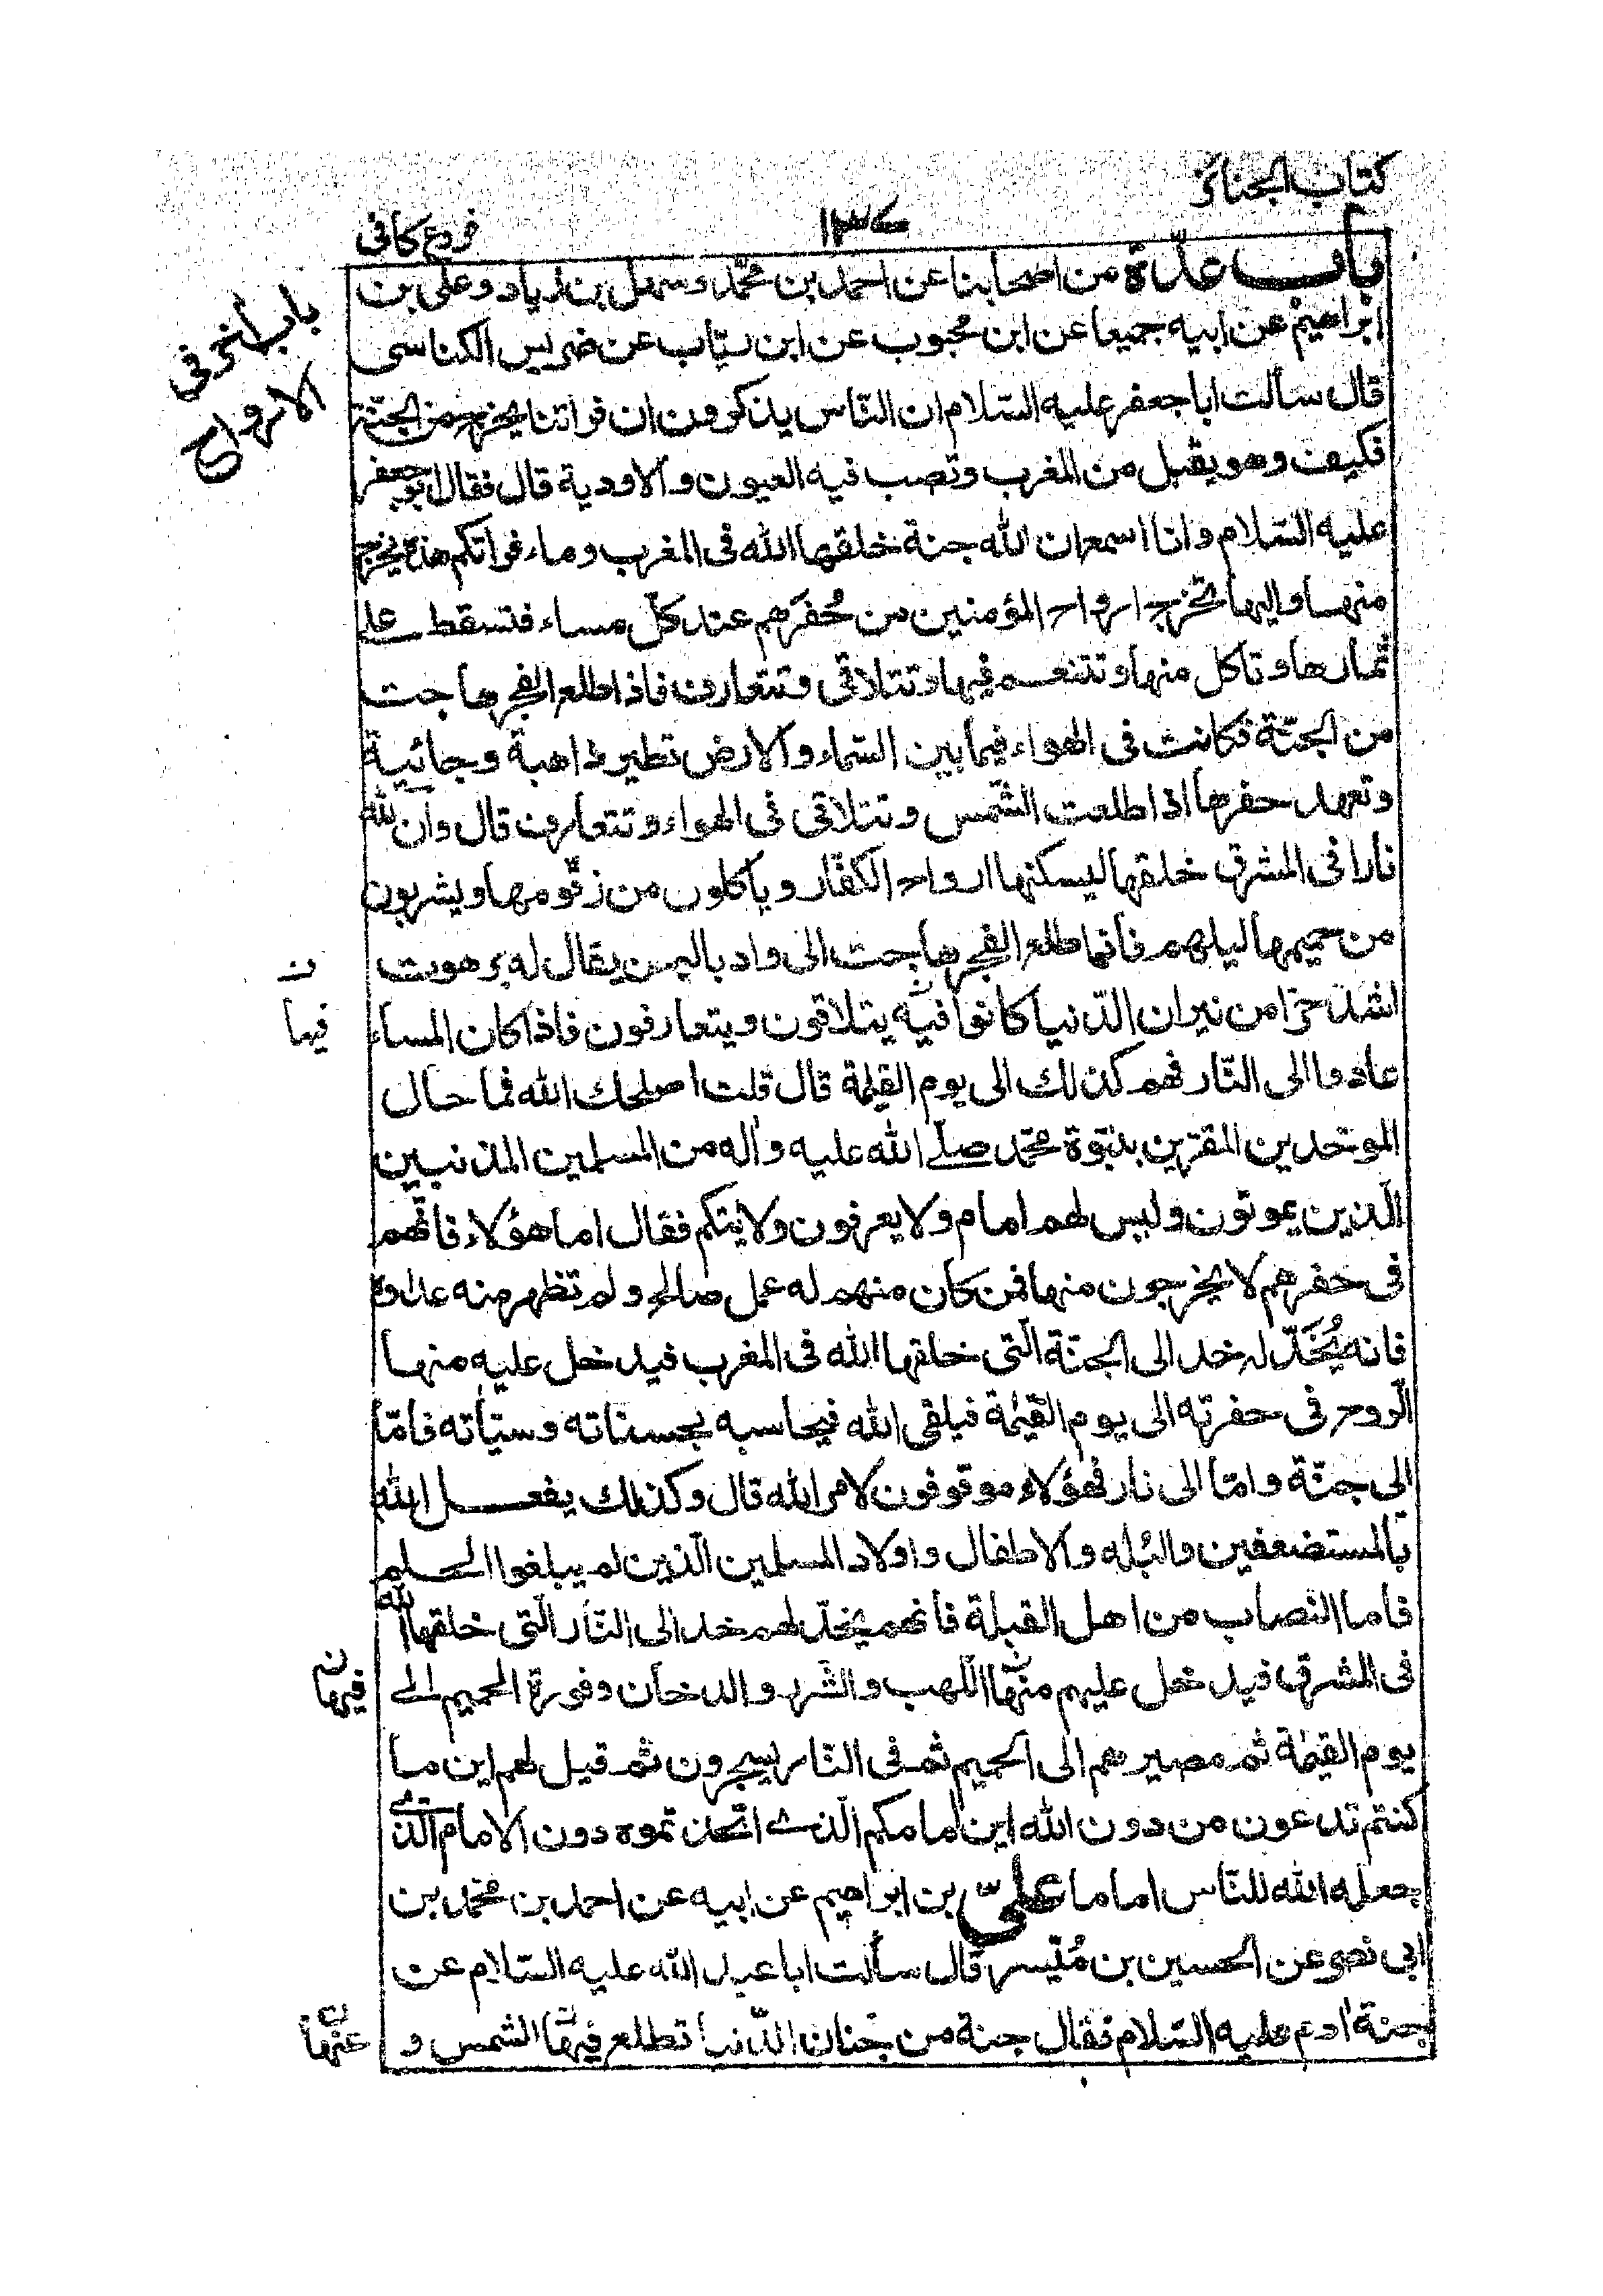 كتاب الجنائز
١٣٧
فروع كافى
باب عدّة من اصحابنا عن احمد بن محمّد وسهل بن زياد وعلى بن
ابراهيم عن ابيه جميعا عن ابن محبوب عن ابن رئاب عن ضريس الكناسى
قال سألت ابا جعفر عليه السّلام ان النّاس يذكرون ان فراتنا يخرج من الجنّة
فكيف وهو يقبل من المغرب وتصب فيه العيون والاودية قال فقال ابو جعفر
عليه السّلام وانا اسمع ان لله جنة خلقها الله فى المغرب وماء فراتكم هذه يخرج
منها واليها تخرج ارواح المؤمنين من حُفَرهم عند كلّ مساء فتسقط على
ثمارها وتاكل منها وتتنعم فيها وتتلاقى وتتعارف فاذا طلع الفجر هاجت
من الجنّة فكانت فى الهواء فيما بين السّماء والارض تطير ذاهبة وجائية
وتعهد حفرها اذا طلعت الشّمس وتتلاقى فى الهواء وتتعارف قال وان لله
نارا فى المشرق خلقها ليسكنها ارواح الكفّار وياكلون من زقّومها ويشربون
من حميمها ليلهم فاذا طلع الفجر هاجت الى واد باليمن يقال له برهوت
اشدّ حرّا من نيران الدّنيا كانوا فيه يتلاقون ويتعارفون فاذا كان المساء
عادوا الى النّار فهم كذلك الى يوم القيمة قال قلت اصلحك الله فما حال
الموحّدين المقرّين بنبوّة محمّد صلّى الله عليه واله من المسلمين المذنبين
الّذين يموتون وليس لهم امام ولا يعرفون ولايتكم فقال اما هؤلاء فانّهم
فى حفرهم لا يخرجون منها فمن كان منهم له عمل صالح ولم تظهر منه عداوة
فانه يُخَدّ له خد الى الجنّة الّتى خلقها الله فى المغرب فيدخل عليه منها
الرّوح فى حفرته الى يوم القيٰمة فيلقى الله فيحاسبه بحسناته وسيّاته فامّا
الى جنّة وامّا الى نار فهؤلاء موقوفون لامر الله قال وكذلك يفعل الله
بالمستضعفين والبُله والاطفال واولاد المسلمين الّذين لم يبلغوا الحلم
فاما النّصاب من اهل القبلة فانهم يخدّ لهم خد الى النّار الّتى خلقها الله
فى المشرق فيدخل عليهم منها اللّهب والشّرر والدخان وفورة الحميم الى
يوم القيٰمة ثم مصيرهم الى الحميم ثم فى النّار يسجرون ثم قيل لهم اين ما
كنتم تدعون من دون الله اين امامكم الّذى اتّخذتموه دون الامام الّذى
جعله الله للنّاس اماما علىّ بن ابراهيم عن ابيه عن احمد بن محمّد بن
ابى نصر عن الحسين بن مُيّسر قال سألت ابا عبد الله عليه السّلام عن
جنة ادم عليه السّلام فقال جنة من جنان الدّنيا تطلع فيها الشمس و
باب اٰخر فى
الارواح
ن
فيها
ن
فيها
عنها